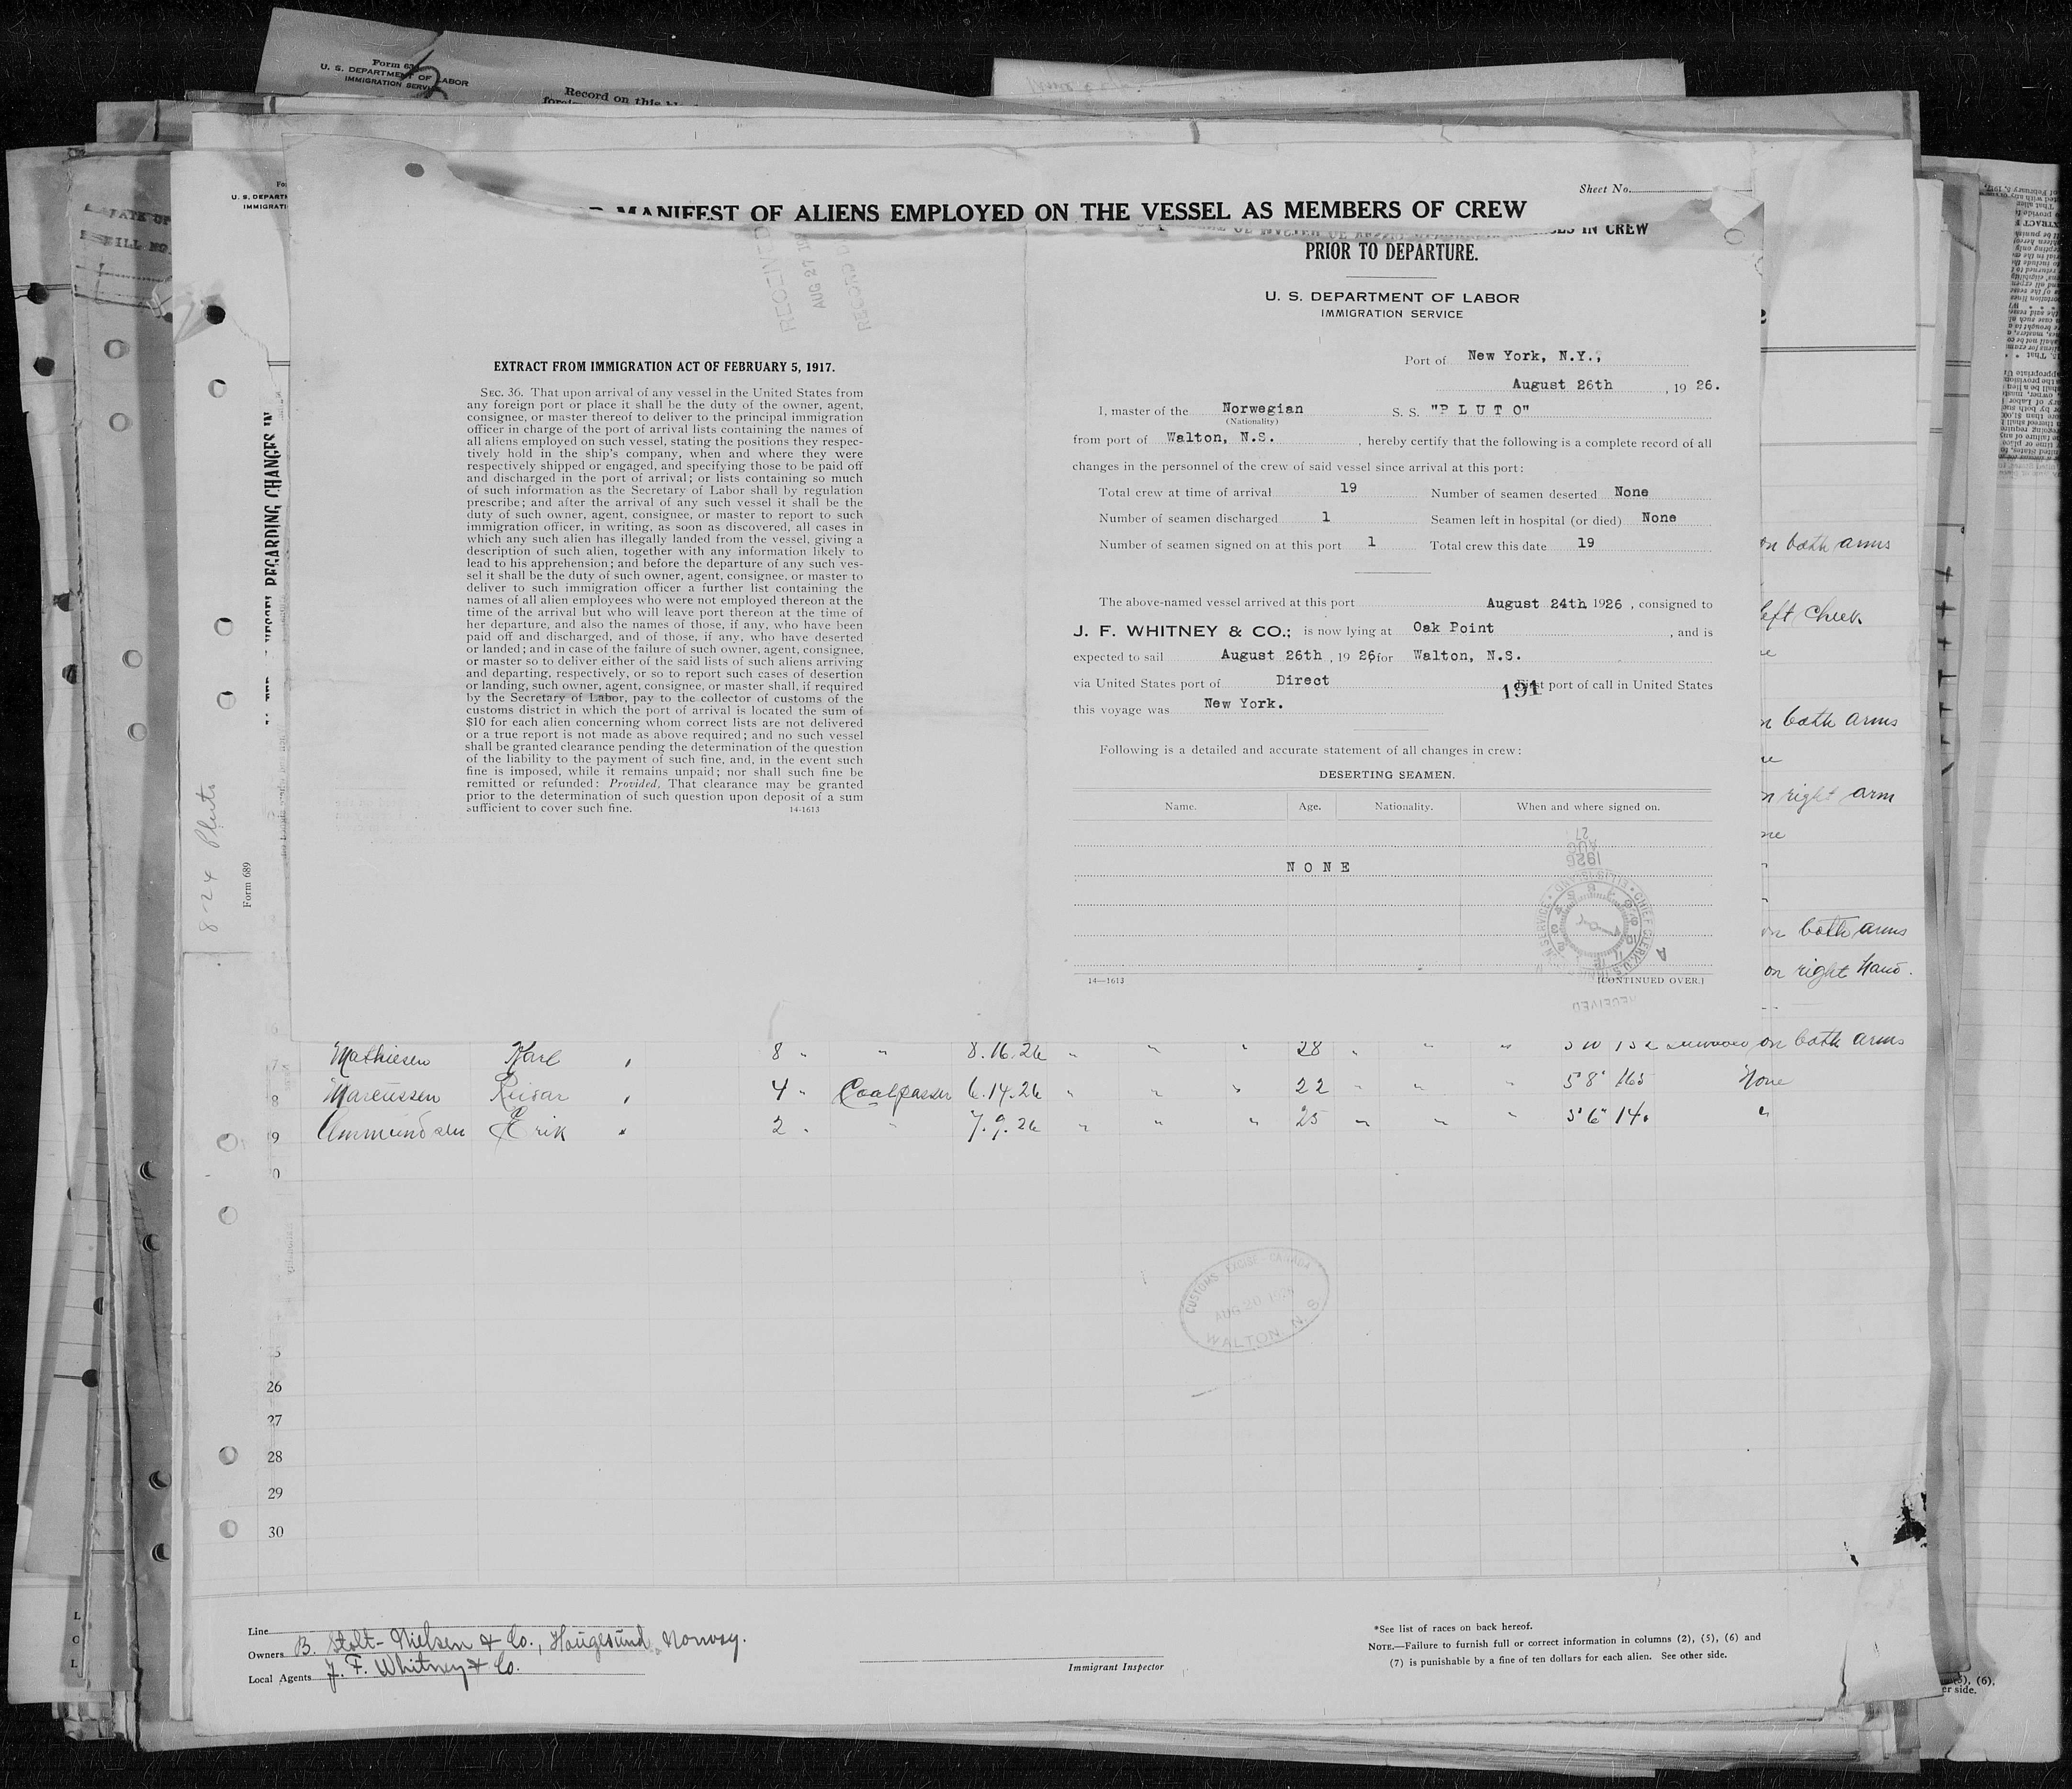 Form 6
U. S. DEPARTMENT OF LABOR
IMMIGRATION SERVICE
Record on this
Sheet No.
MANIFEST OF ALIENS EMPLOYED ON THE VESSEL AS MEMBERS OF CREW
IN CREW
PRIOR TO DEPARTURE.
U. S. DEPARTMENT OF LABOR
IMMIGRATION SERVICE
RECEIVED
AUG 27
RECORD
Port of New York, N.Y.,
August 26th, 1926.
I, master of the Norwegian S. S. "P L U T O"
(Nationality)
from port of Walton, N.S., hereby certify that the following is a complete record of all
changes in the personnel of the crew of said vessel since arrival at this port:
Total crew at time of arrival 19 Number of seamen deserted None
Number of seamen discharged 1 Seamen left in hospital (or died) None
Number of seamen signed on at this port 1 Total crew this date 19
The above-named vessel arrived at this port August 24th 1926, consigned to
J. F. WHITNEY & CO.; is now lying at Oak Point, and is
expected to sail August 26th, 1926 for Walton, N.S.
via United States port of Direct First port of call in United States
191
this voyage was New York.
Following is a detailed and accurate statement of all changes in crew:
DESERTING SEAMEN.
Name. Age. Nationality. When and where signed on.
N O N E
1926
AUG
27
RECEIVED
14—1613 [CONTINUED OVER.]
EXTRACT FROM IMMIGRATION ACT OF FEBRUARY 5, 1917.
SEC. 36. That upon arrival of any vessel in the United States from
any foreign port or place it shall be the duty of the owner, agent,
consignee, or master thereof to deliver to the principal immigration
officer in charge of the port of arrival lists containing the names of
all aliens employed on such vessel, stating the positions they respec-
tively hold in the ship's company, when and where they were
respectively shipped or engaged, and specifying those to be paid off
and discharged in the port of arrival; or lists containing so much
of such information as the Secretary of Labor shall by regulation
prescribe; and after the arrival of any such vessel it shall be the
duty of such owner, agent, consignee, or master to report to such
immigration officer, in writing, as soon as discovered, all cases in
which any such alien has illegally landed from the vessel, giving a
description of such alien, together with any information likely to
lead to his apprehension; and before the departure of any such ves-
sel it shall be the duty of such owner, agent, consignee, or master to
deliver to such immigration officer a further list containing the
names of all alien employees who were not employed thereon at the
time of the arrival but who will leave port thereon at the time of
her departure, and also the names of those, if any, who have been
paid off and discharged, and of those, if any, who have deserted
or landed; and in case of the failure of such owner, agent, consignee,
or master so to deliver either of the said lists of such aliens arriving
and departing, respectively, or so to report such cases of desertion
or landing, such owner, agent, consignee, or master shall, if required
by the Secretary of Labor, pay to the collector of customs of the
customs district in which the port of arrival is located the sum of
$10 for each alien concerning whom correct lists are not delivered
or a true report is not made as above required; and no such vessel
shall be granted clearance pending the determination of the question
of the liability to the payment of such fine, and, in the event such
fine is imposed, while it remains unpaid; nor shall such fine be
remitted or refunded: Provided, That clearance may be granted
prior to the determination of such question upon deposit of a sum
sufficient to cover such fine. 14-1613
VESSEL REGARDING CHANGES IN
Form 689
8-24 Pluto
on both arms
left cheek
on both arms
on right arm
on both arms
on right hand.
7 Mathiesen Karl " 8 " " 8.16.26 " " " 28 " " " on both arms
8 Marcussen Reisar " 4 " Coalpasser 6.14.26 " " " 22 " " " 5'8" 165 None
9 Ammundsen Erik " 2 " " 7.9.26 " " " 25 " " " 5'6" 140 "
0
5
26
27
28
29
30
CUSTOMS EXCISE - CANADA
AUG 20 1926
WALTON N. S.
Line
Owners B. Stolt-Nielsen & Co., Haugesund, Norway.
Local Agents J. F. Whitney & Co.
Immigrant Inspector
*See list of races on back hereof.
NOTE.—Failure to furnish full or correct information in columns (2), (5), (6) and
(7) is punishable by a fine of ten dollars for each alien. See other side.